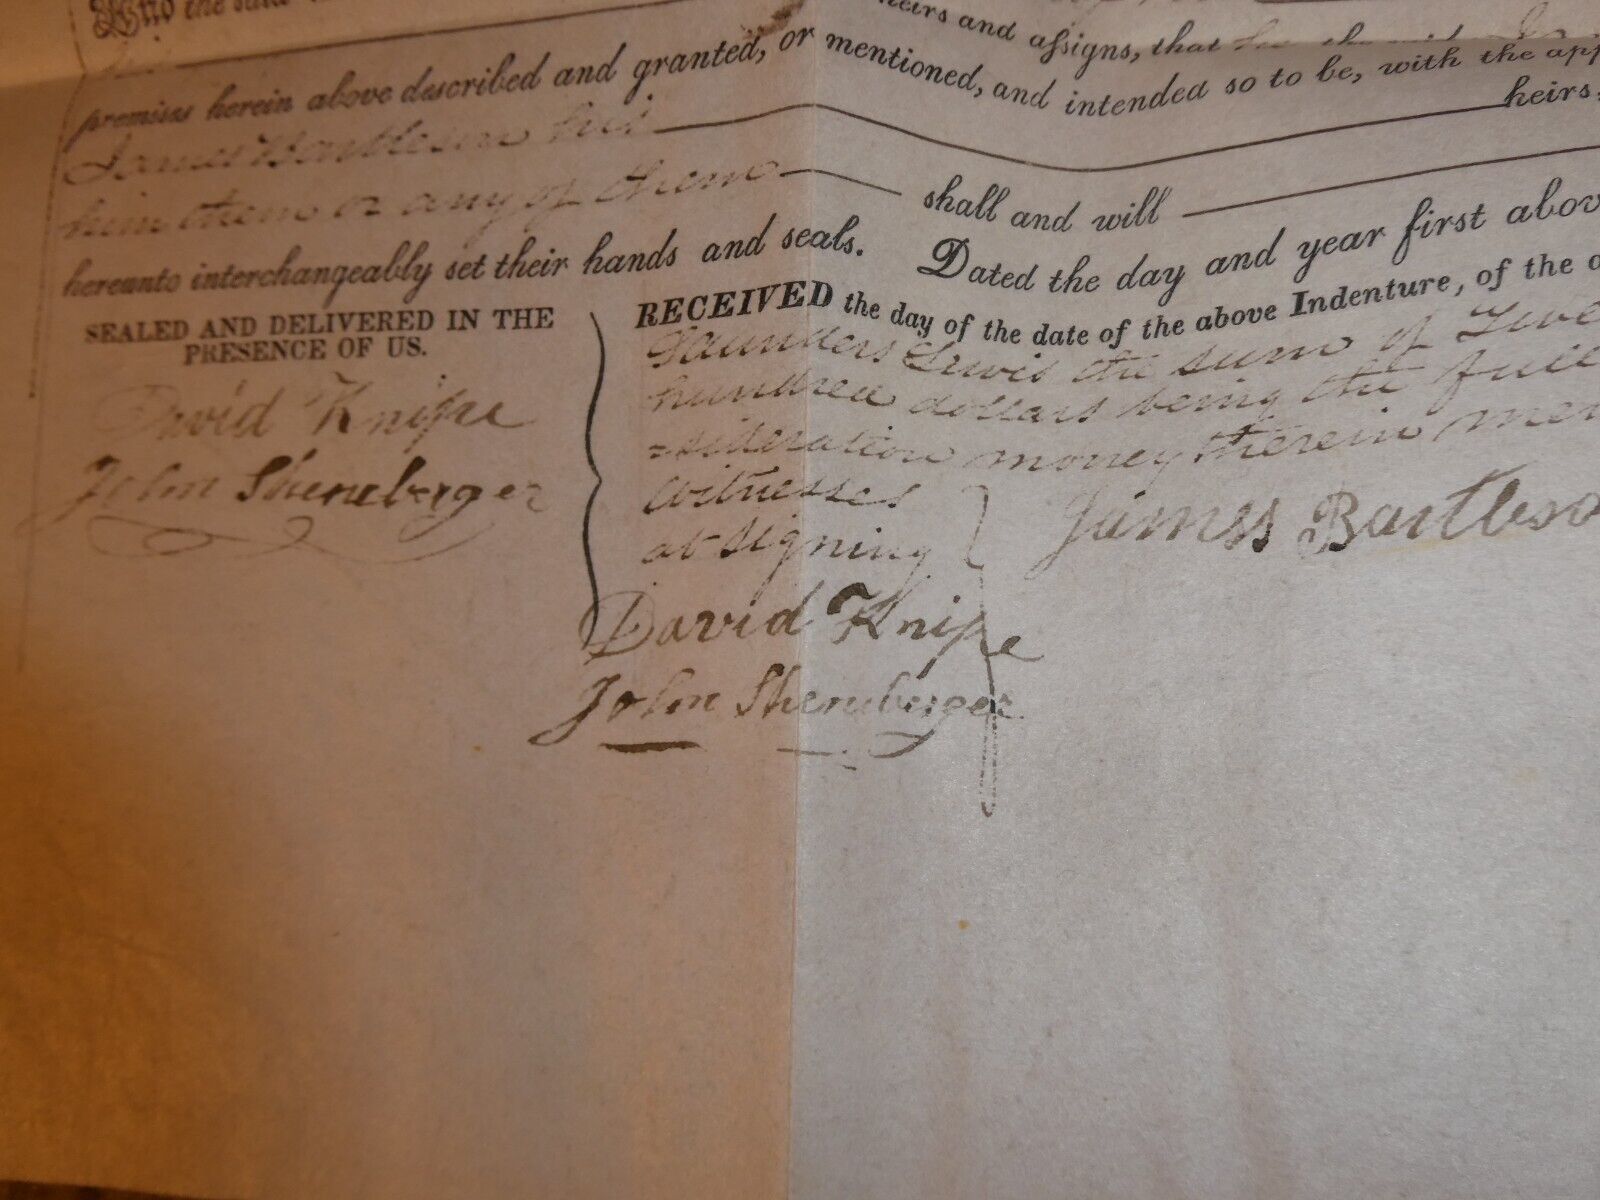 And the said
heirs and assigns, that he the said
premises herein above described and granted, or mentioned, and intended so to be, with the app
James Bartleson his heirs,
him them or any of them shall and will
hereunto interchangeably set their hands and seals. Dated the day and year first abov
SEALED AND DELIVERED IN THE
PRESENCE OF US.
David Knipe
John Sheneberger
RECEIVED the day of the date of the above Indenture, of the a
Saunders Lewis the sum of Twe
hundred dollars being the full
=sideration money therein men
Witnesses
at signing
James Bartleso
David Knipe
John Sheneberger